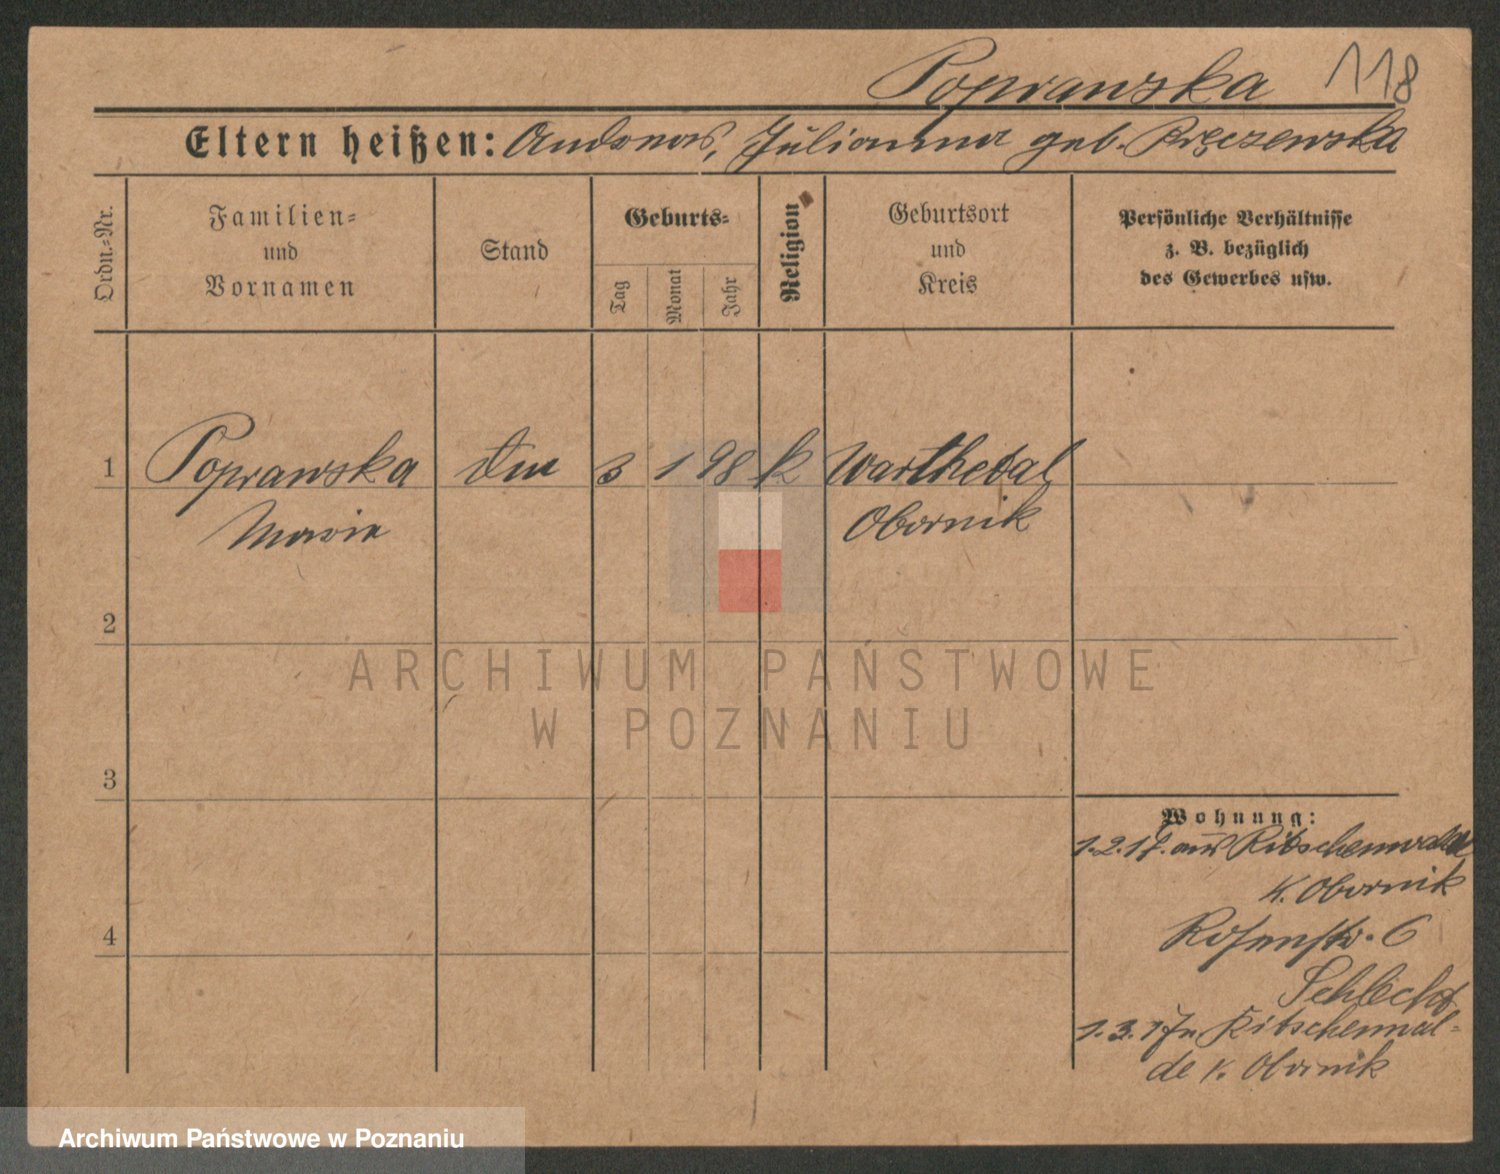 Poprawska 118
Eltern heißen: Andreas, Julianna geb.
Ordn.-Nr.
Familien-
und
Vornamen
Stand
Geburts-
Tag
Monat
Jahr
Religion
Geburtsort
und
Kreis
Persönliche Verhältnisse
z. B. bezüglich
des Gewerbes usw.
1 Poprawska 3 1 98 k Warthetal
Marie Obornik
2
3
4
Wohnung:
1.2.17. aus Ritschenwalde
K. Obornik
Rosenstr. 6
Schlecht
1.3.17 n Ritschenwal-
de K. Obornik
ARCHIWUM PAŃSTWOWE
W POZNANIU
Archiwum Państwowe w Poznaniu